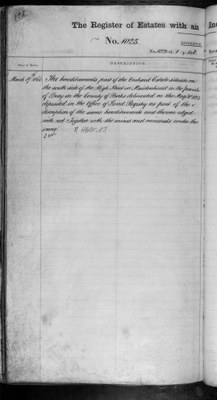 The Register of Estates with an In
No. 1025
DESCRIPTION
March 17th 1865 The hereditaments part of the Orchard Estate situate on
the south side of the High Street in Maidenhead in the parish
of Bray in the County of Berks delineated on the Map No 1025
deposited in the Office of Land Registry as part of the
description of the same hereditaments and thereon edged
with red Together with the mines and minerals under the
same